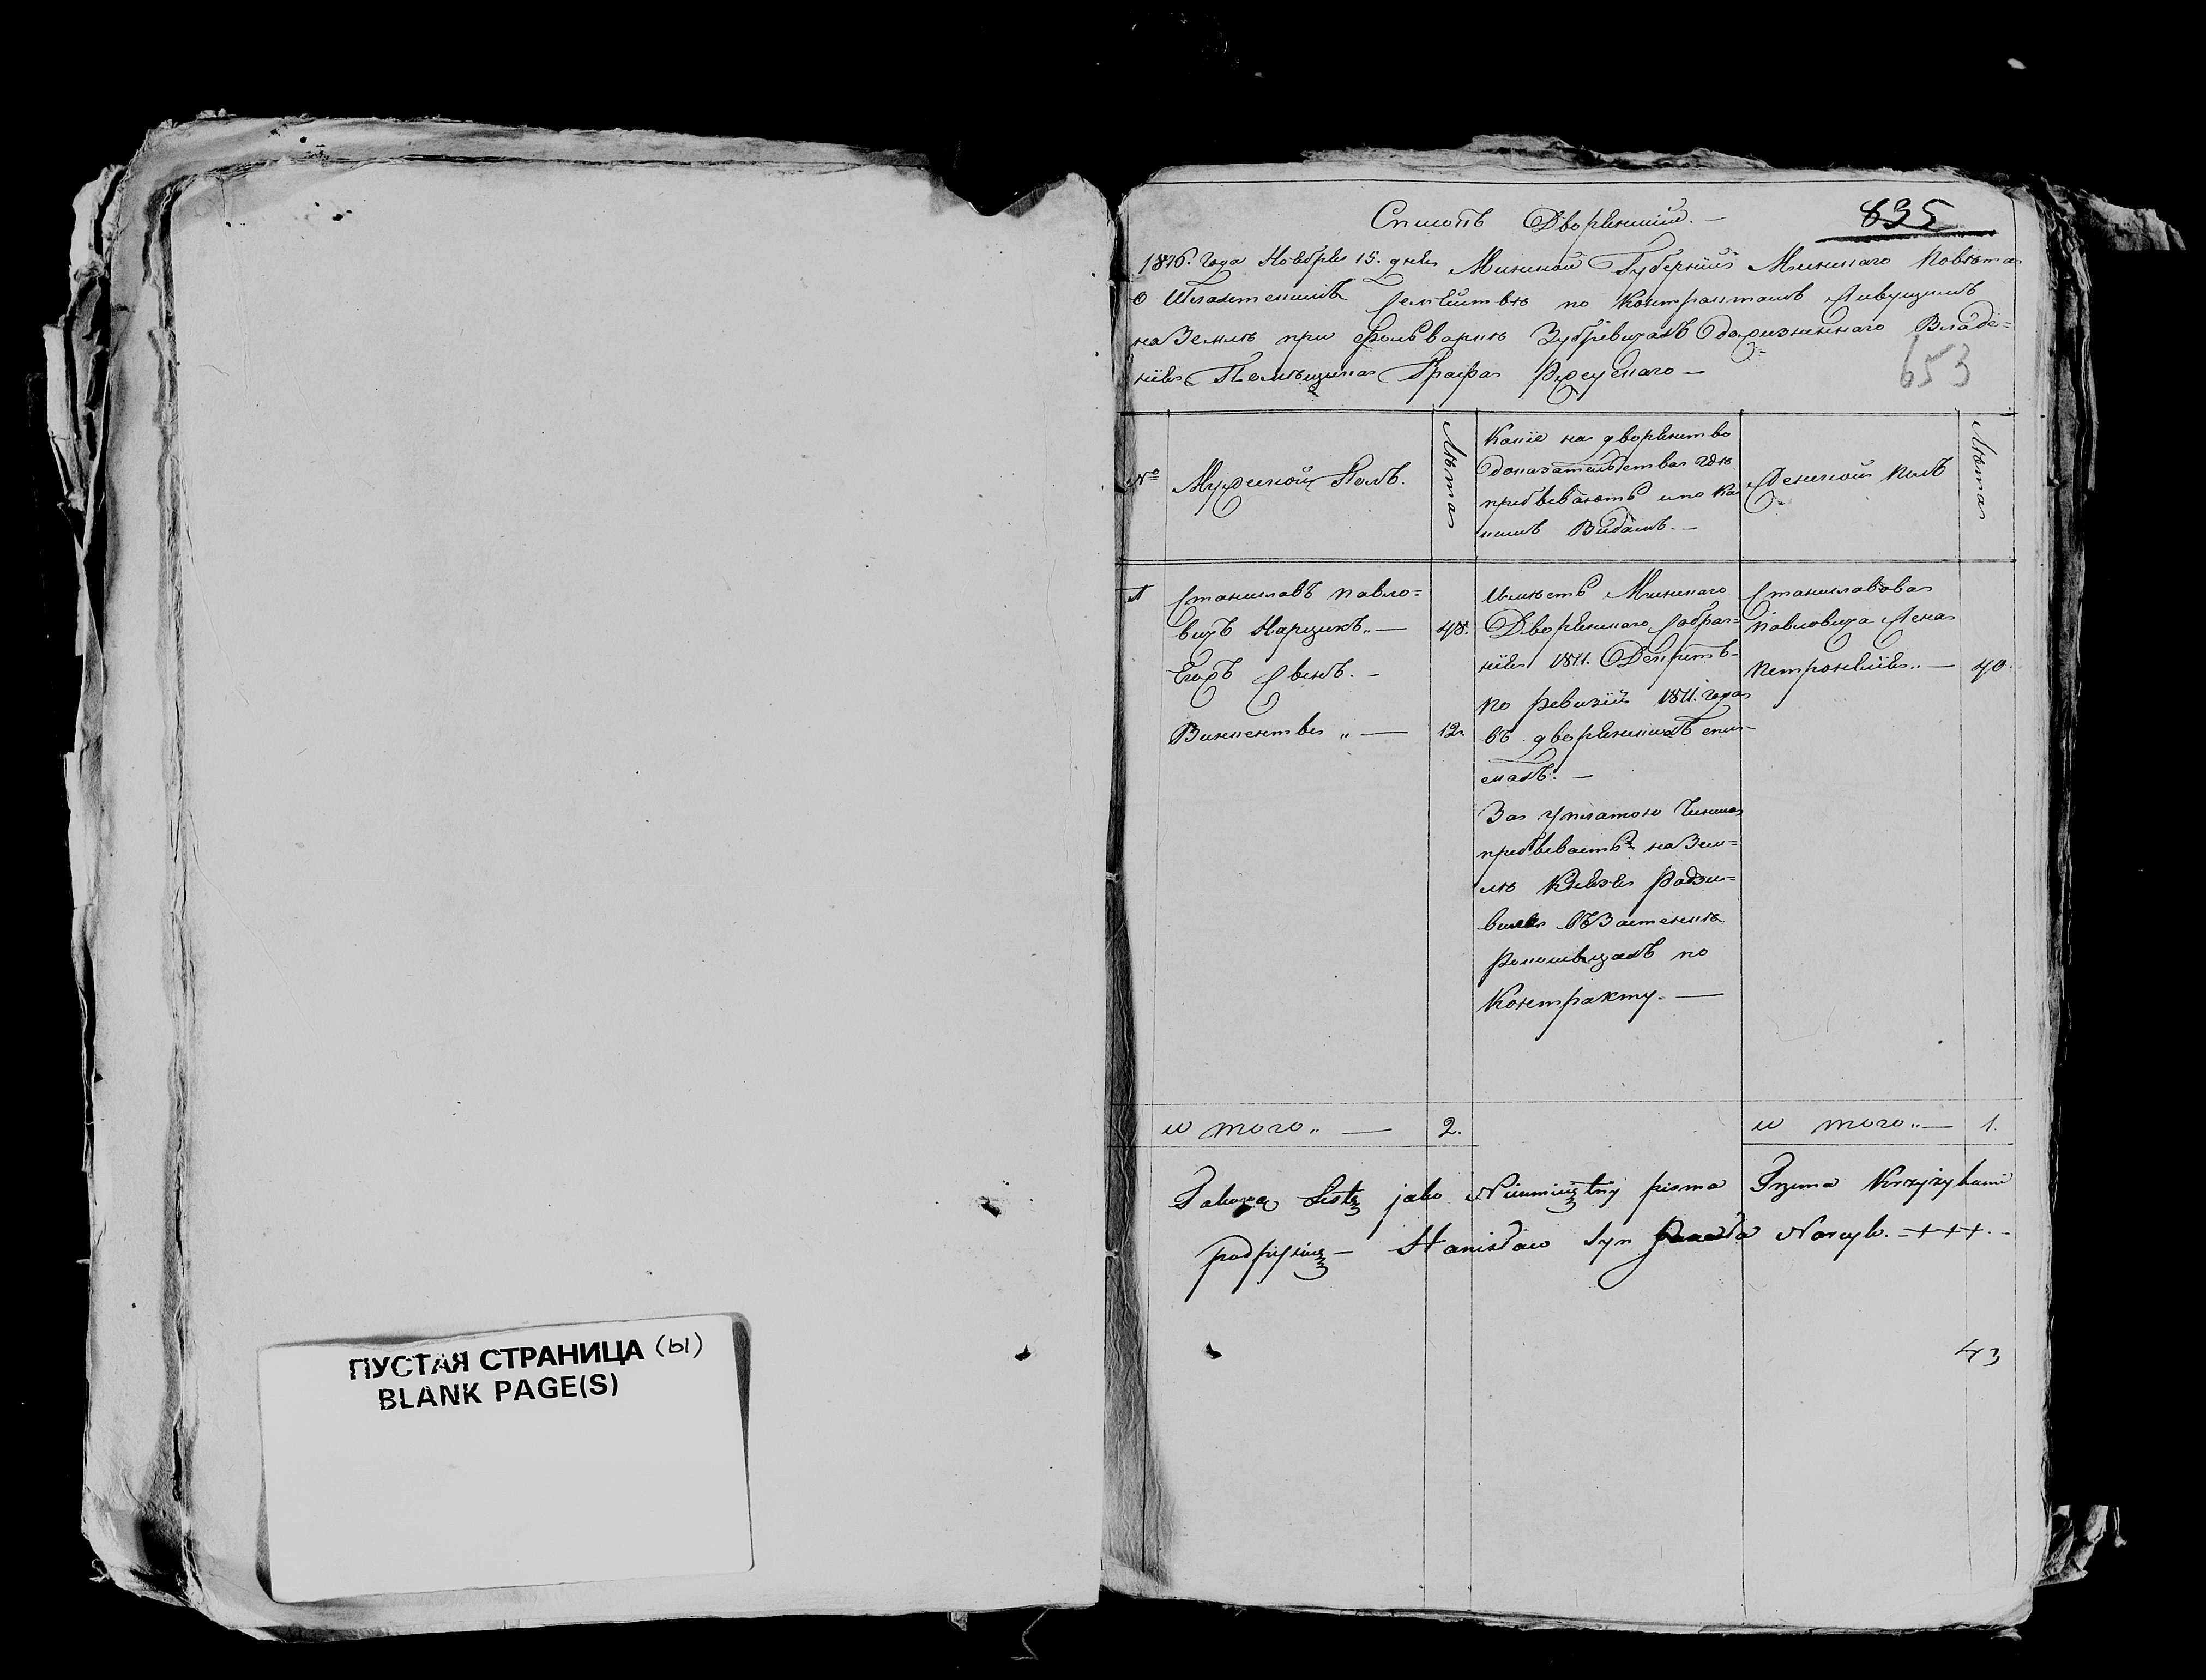 ПУСТАЯ СТРАНИЦА (ы)
BLANK PAGE(S)
Списокъ Дворянский. —
635
1816. года Ноября 15. дня Минской Губернии Минскаго Повѣта
О Шляхетскихъ Семействѣ по Контрактамъ живущихъ
на Землѣ при Фольваркѣ Зубревичахъ Владе=
нія Помѣщика Графа —
653
№
Мужеской Полъ.
Лѣта
Какіе на дворянство
доказательства гдѣ
пребываютъ и по ка
кимъ Видамъ. —
Женской полъ
Лѣта
1
Станиславъ Павло=
вичъ Нарцукъ „ —
48.
Егожъ Сынъ. —
Викентия „ —
12
Имѣетъ Минскаго
Дворянскаго Собра=
нія 1811. Декретъ —
по ревизіи 1811. года
въ дворянскихъ спи=
скахъ. —
За уплатою Чинша
пребываетъ на Зем=
лѣ Князя Радзи=
вила въ Застенкѣ
по
Контракту. —
Станиславова
Павловича Жена
Петронелія „ —
40
и того „ —
2.
и того „ —
1.
Takową Listę jako Nieumiejętny pisma Trzema Krzyżykami
podpisuję — Stanisław Syn Pawła Narcyk. +++ —
43